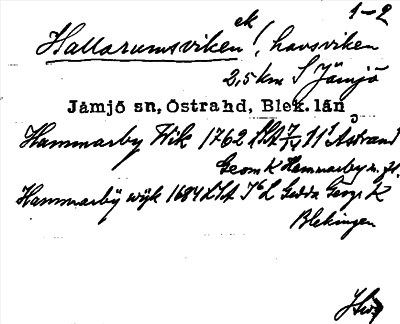 1-2
Hallarumsviken ek!, havsviken
2,5 km S Jämjö
Jämjö sn, Östra hd, Blek. län
Hammarby Wik 1762 LSA
Geom K Hammarby
Hammarby wijk 1684 LSA Gedda Geogr K
Blekingen